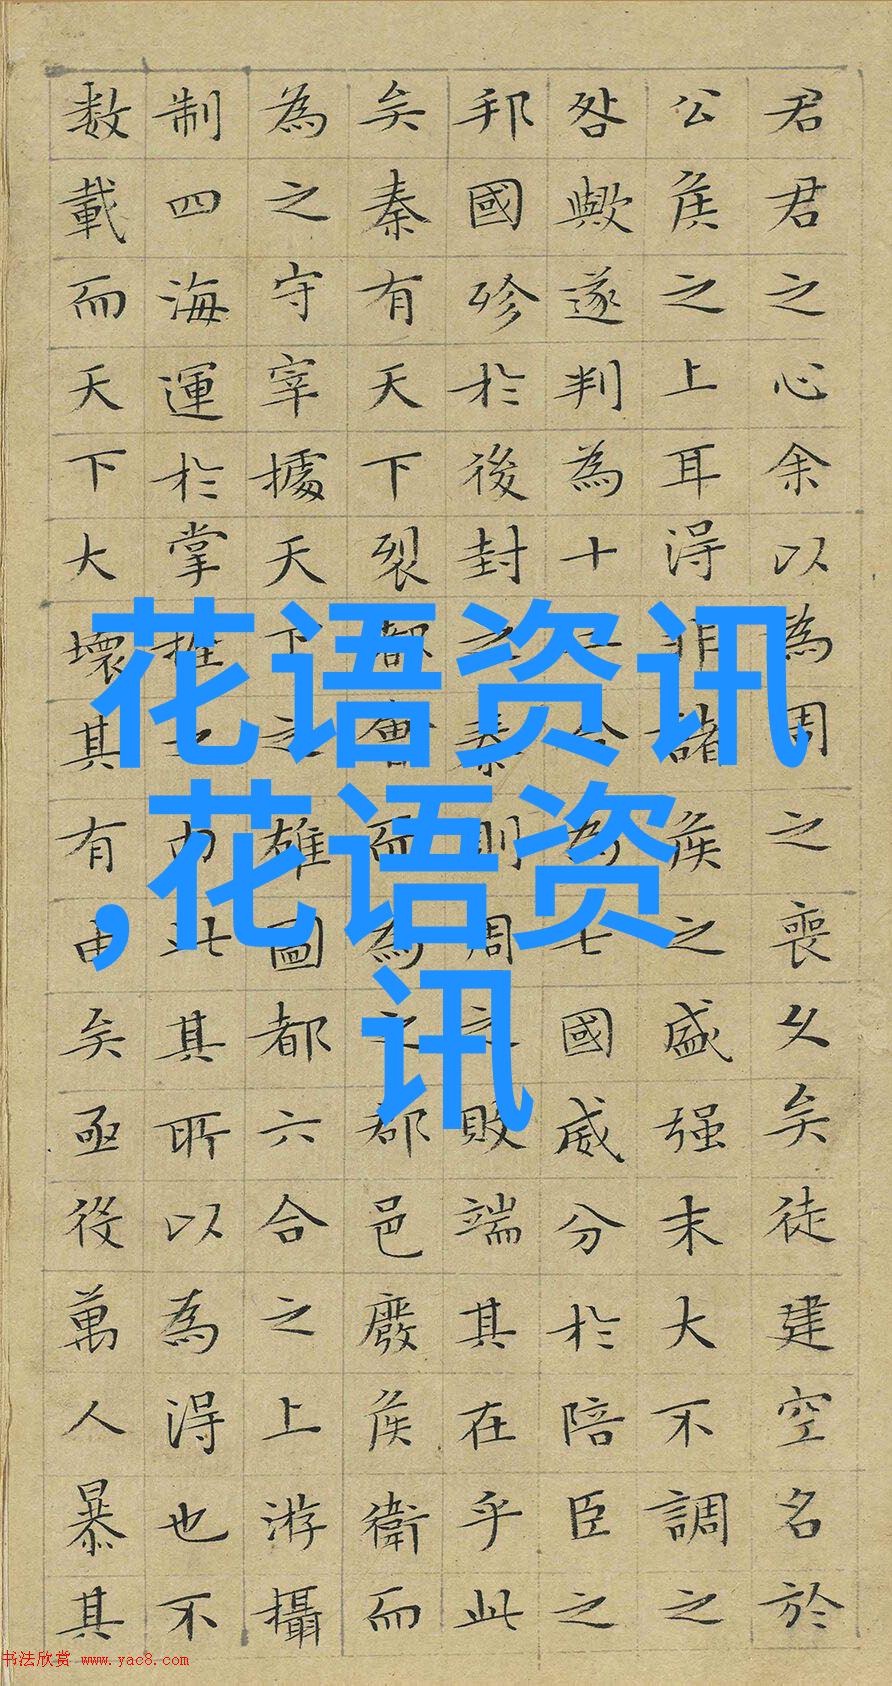 君君之心余以為周之喪久矣徒建空名於
公侯之上耳得非諸侯之盛强末大不調之
咎歟遂判為十二合為七國威分於陪臣之
邦國殄於後封之秦則周之敗端其在乎此
矣秦有天下裂都會而為之郡邑廢侯衛而
為之守宰據天下之雄圖都六合之上游攝
制四海運於掌握之內此其所以為得也不
数載而天下大壞其有由矣亟役萬人暴其
花语资讯
,花语资
讯
书法欣赏 www.yac8.com